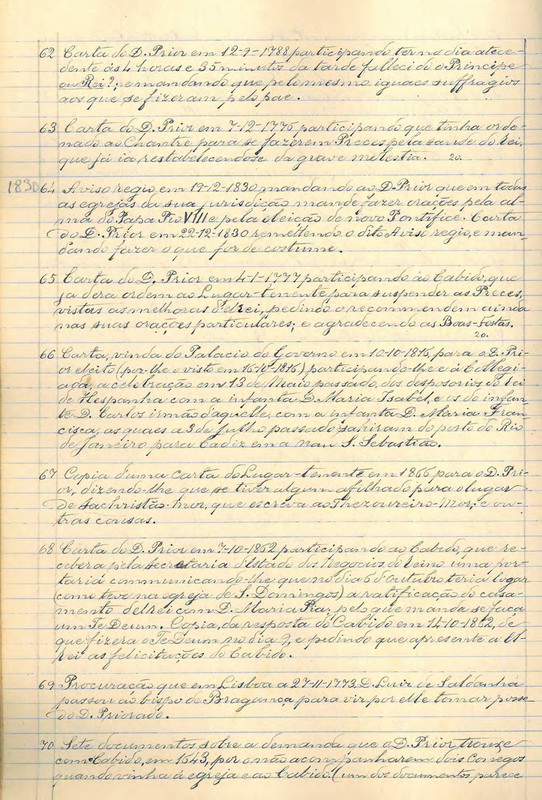 62 Carta do D. Prior em 12-9-1788 participando ter no dia atece-
dente ás 4 horas e 35 minutos da tarde fallecido o Principe
ou Rei?; e mandando que pelo mesmo iguaes suffragios
aos que se fizeram pelo pae.
63 Carta do D. Prior em 7-12-1776 participando que tinha orde-
nado ao Chantre para se fazerem Preces pela saude do Rei,
que já ia restabelecendo-se da grave molestia. 20.
1830 64 Aviso regio, em 19-12-1830, mandando ao D. Prior que em todas
as egrejas da sua jurisdição mande fazer orações pela al-
ma do Papa Pio VIII e pela eleição de novo Pontifice. Carta
do D. Prior em 22-12-1830 remettendo o dito Aviso regio, e man-
dando fazer o que for de costume.
65 Carta do D. Prior em 4-1-1777 participando ao Cabido, que
ja dera ordem ao Lugar-tenente para suspender as Preces,
vistas as melhoras d'elrei, pedindo o recommendem ainda
nas suas orações particulares; e agradecendo as Boas-festas.
20.
66 Carta, vinda do Palacio do Governo em 10-10-1816, para o D. Pri-
or eleito (por-lhe o visto em 16-10-1816) participando-lhe e á Collegi-
ada, a celebração em 13 de Maio passado, dos desposorios do rei
de Hespanha com a infanta D. Maria Isabel, e os do infan-
te D. Carlos irmão d'aquelle, com a infanta D. Maria Fran-
cisca, as quaes a 3 de Julho passado sahiram do porto do Rio
de Janeiro para Cadiz em a nau S. Sebastião.
67 Copia d'uma carta do Lugar-tenente em 1866 para o D. Pri-
or, dizendo-lhe que se tiver algum afilhado para o lugar
de sachristão-mor, que escreva ao Thezoureiro-Mor; e ou-
tras cousas.
68 Carta do D. Prior em 7-10-1862 participando ao Cabido, que re-
cebera pela Secretaria d'Estado dos Negocios do Reino uma por-
taria communicando-lhe que no dia 6 d'outubro teria lugar
(como teve na egreja de S. Domingos) a ratificação do casa-
mento d'elrei com D. Maria Pia, pelo que manda se faça
um Te Deum. Copia, da resposta do Cabido em 14-10-1862, de
que fizera o Te Deum no dia 9, e pedindo que apresente a El-
Rei as felicitações do Cabido.
69 Procuração que em Lisboa a 27-11-1773 D. Luiz de Saldanha
passou ao bispo de Bragança para vir por elle tomar posse
do D. Priorado.
70 Sete documentos sobre a demanda que o D. Prior trouxe
com Cabido, em 1643, por o não acompanharem dois Conegos
quando vinha á egreja e ao Cabido. (um dos documentos parece